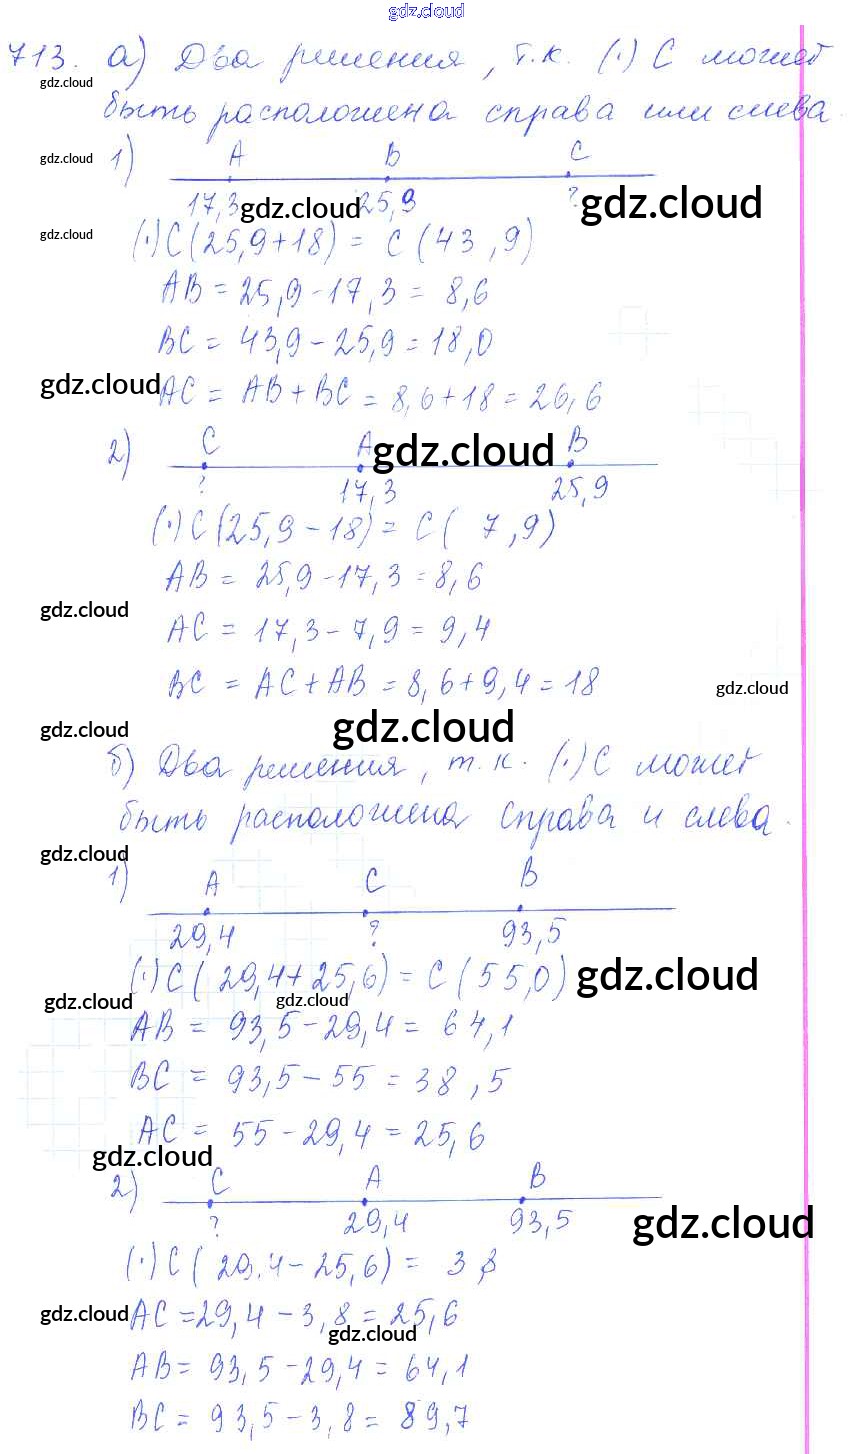 gdz.cloud
713. а) Два решения, т.к. (·) С может
gdz.cloud
быть расположена справа или слева.
gdz.cloud 1) A B C
17,3 gdz.cloud 25,9 ? gdz.cloud
gdz.cloud (·) C (25,9+18) = C (43,9)
AB = 25,9-17,3 = 8,6
BC = 43,9-25,9 = 18,0
gdz.cloud AC = AB + BC = 8,6+18 = 26,6
2) C A gdz.cloud B
? 17,3 25,9
(·) C (25,9-18) = C ( 7,9)
AB = 25,9-17,3 = 8,6
gdz.cloud
AC = 17,3-7,9 = 9,4
BC = AC + AB = 8,6+9,4 = 18 gdz.cloud
gdz.cloud gdz.cloud
б) Два решения, т.к. (·) С может
быть расположена справа и слева.
gdz.cloud
1) A C B
29,4 ? 93,5
(·) C ( 29,4+25,6) = C (55,0) gdz.cloud
gdz.cloud gdz.cloud
AB = 93,5-29,4 = 64,1
BC = 93,5-55 = 38,5
AC = 55-29,4 = 25,6
gdz.cloud
2) C A B
? 29,4 93,5 gdz.cloud
(·) C ( 29,4-25,6) = 3,8
gdz.cloud AC = 29,4-3,8 = 25,6
gdz.cloud
AB = 93,5-29,4 = 64,1
BC = 93,5-3,8 = 89,7